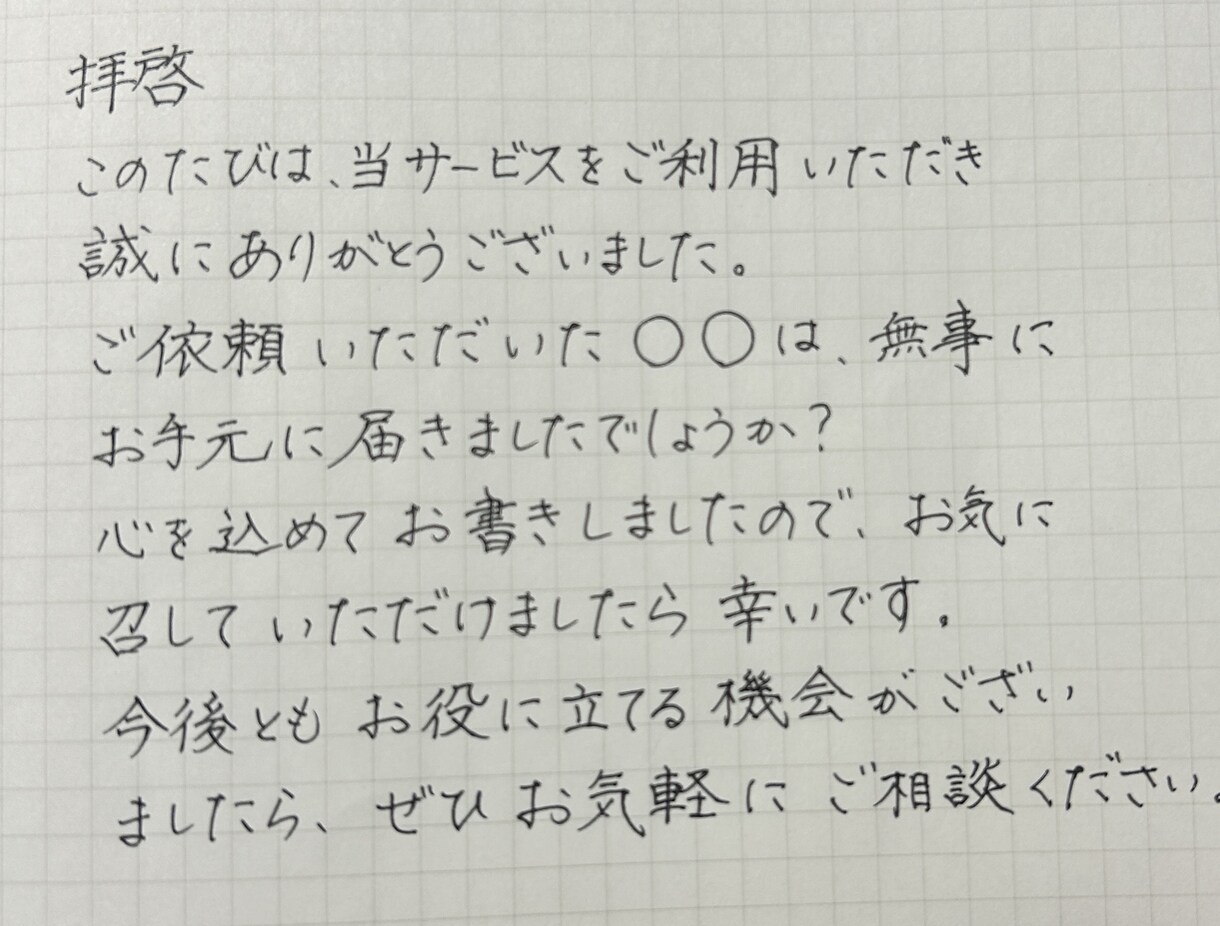 拝啓
このたびは、当サービスをご利用いただき
誠にありがとうございました。
ご依頼いただいた○○は、無事に
お手元に届きましたでしょうか?
心を込めてお書きしましたので、お気に
召していただけましたら幸いです。
今後ともお役に立てる機会がござい
ましたら、ぜひお気軽にご相談ください。